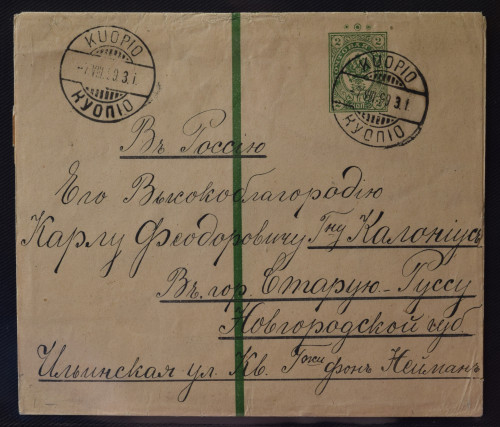 KUOPIO
КУОПІО
2 2
KUOPIO
КУОПІО
Въ Россію
Его Высокоблагородію
Карлу Феодоровичу Гну Калоніусъ
Въ гор. Старую-Руссу
Новгородской губ
Ильинская ул. Кв. Гжи фонъ Нейманъ